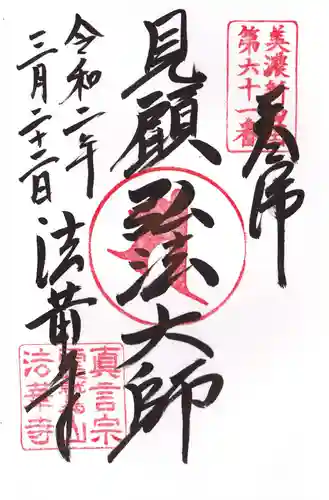 奉拝
美濃新四国
第六十一番
見願弘法大師
令和二年
三月二十二日
法華寺
真言宗
霊鷲山
法華寺